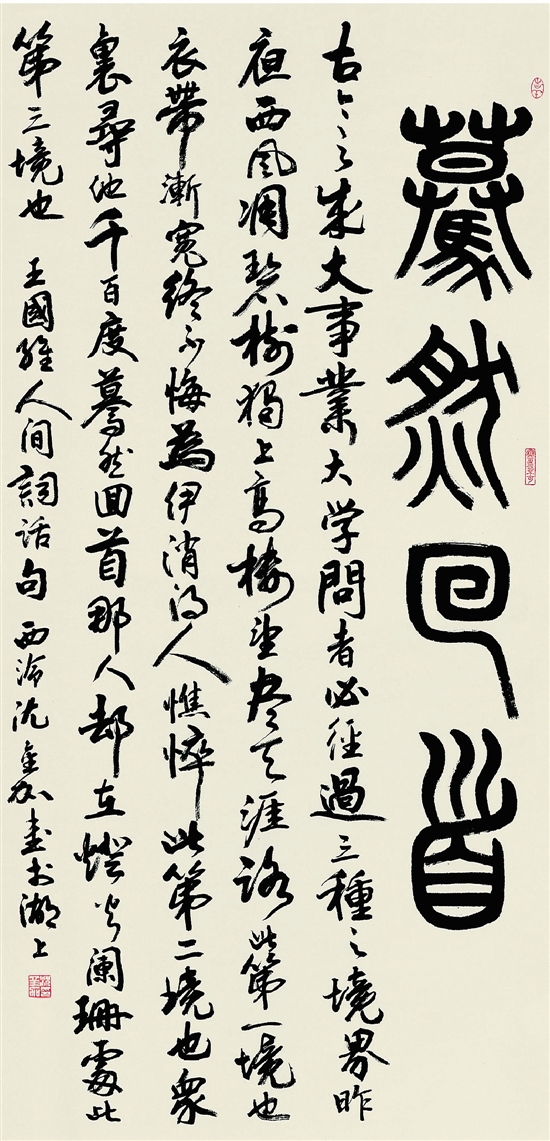 驀然回首
古今之成大事業大学問者必径過三種之境界昨
夜西風凋碧樹獨上高樓望尽天涯路此第一境也
衣帶漸寬終不悔為伊消得人憔悴此第二境也眾
裏尋他千百度驀然回首那人却在燈火闌珊處此
第三境也 王國維人间詞話句 西泠沈書於湖上